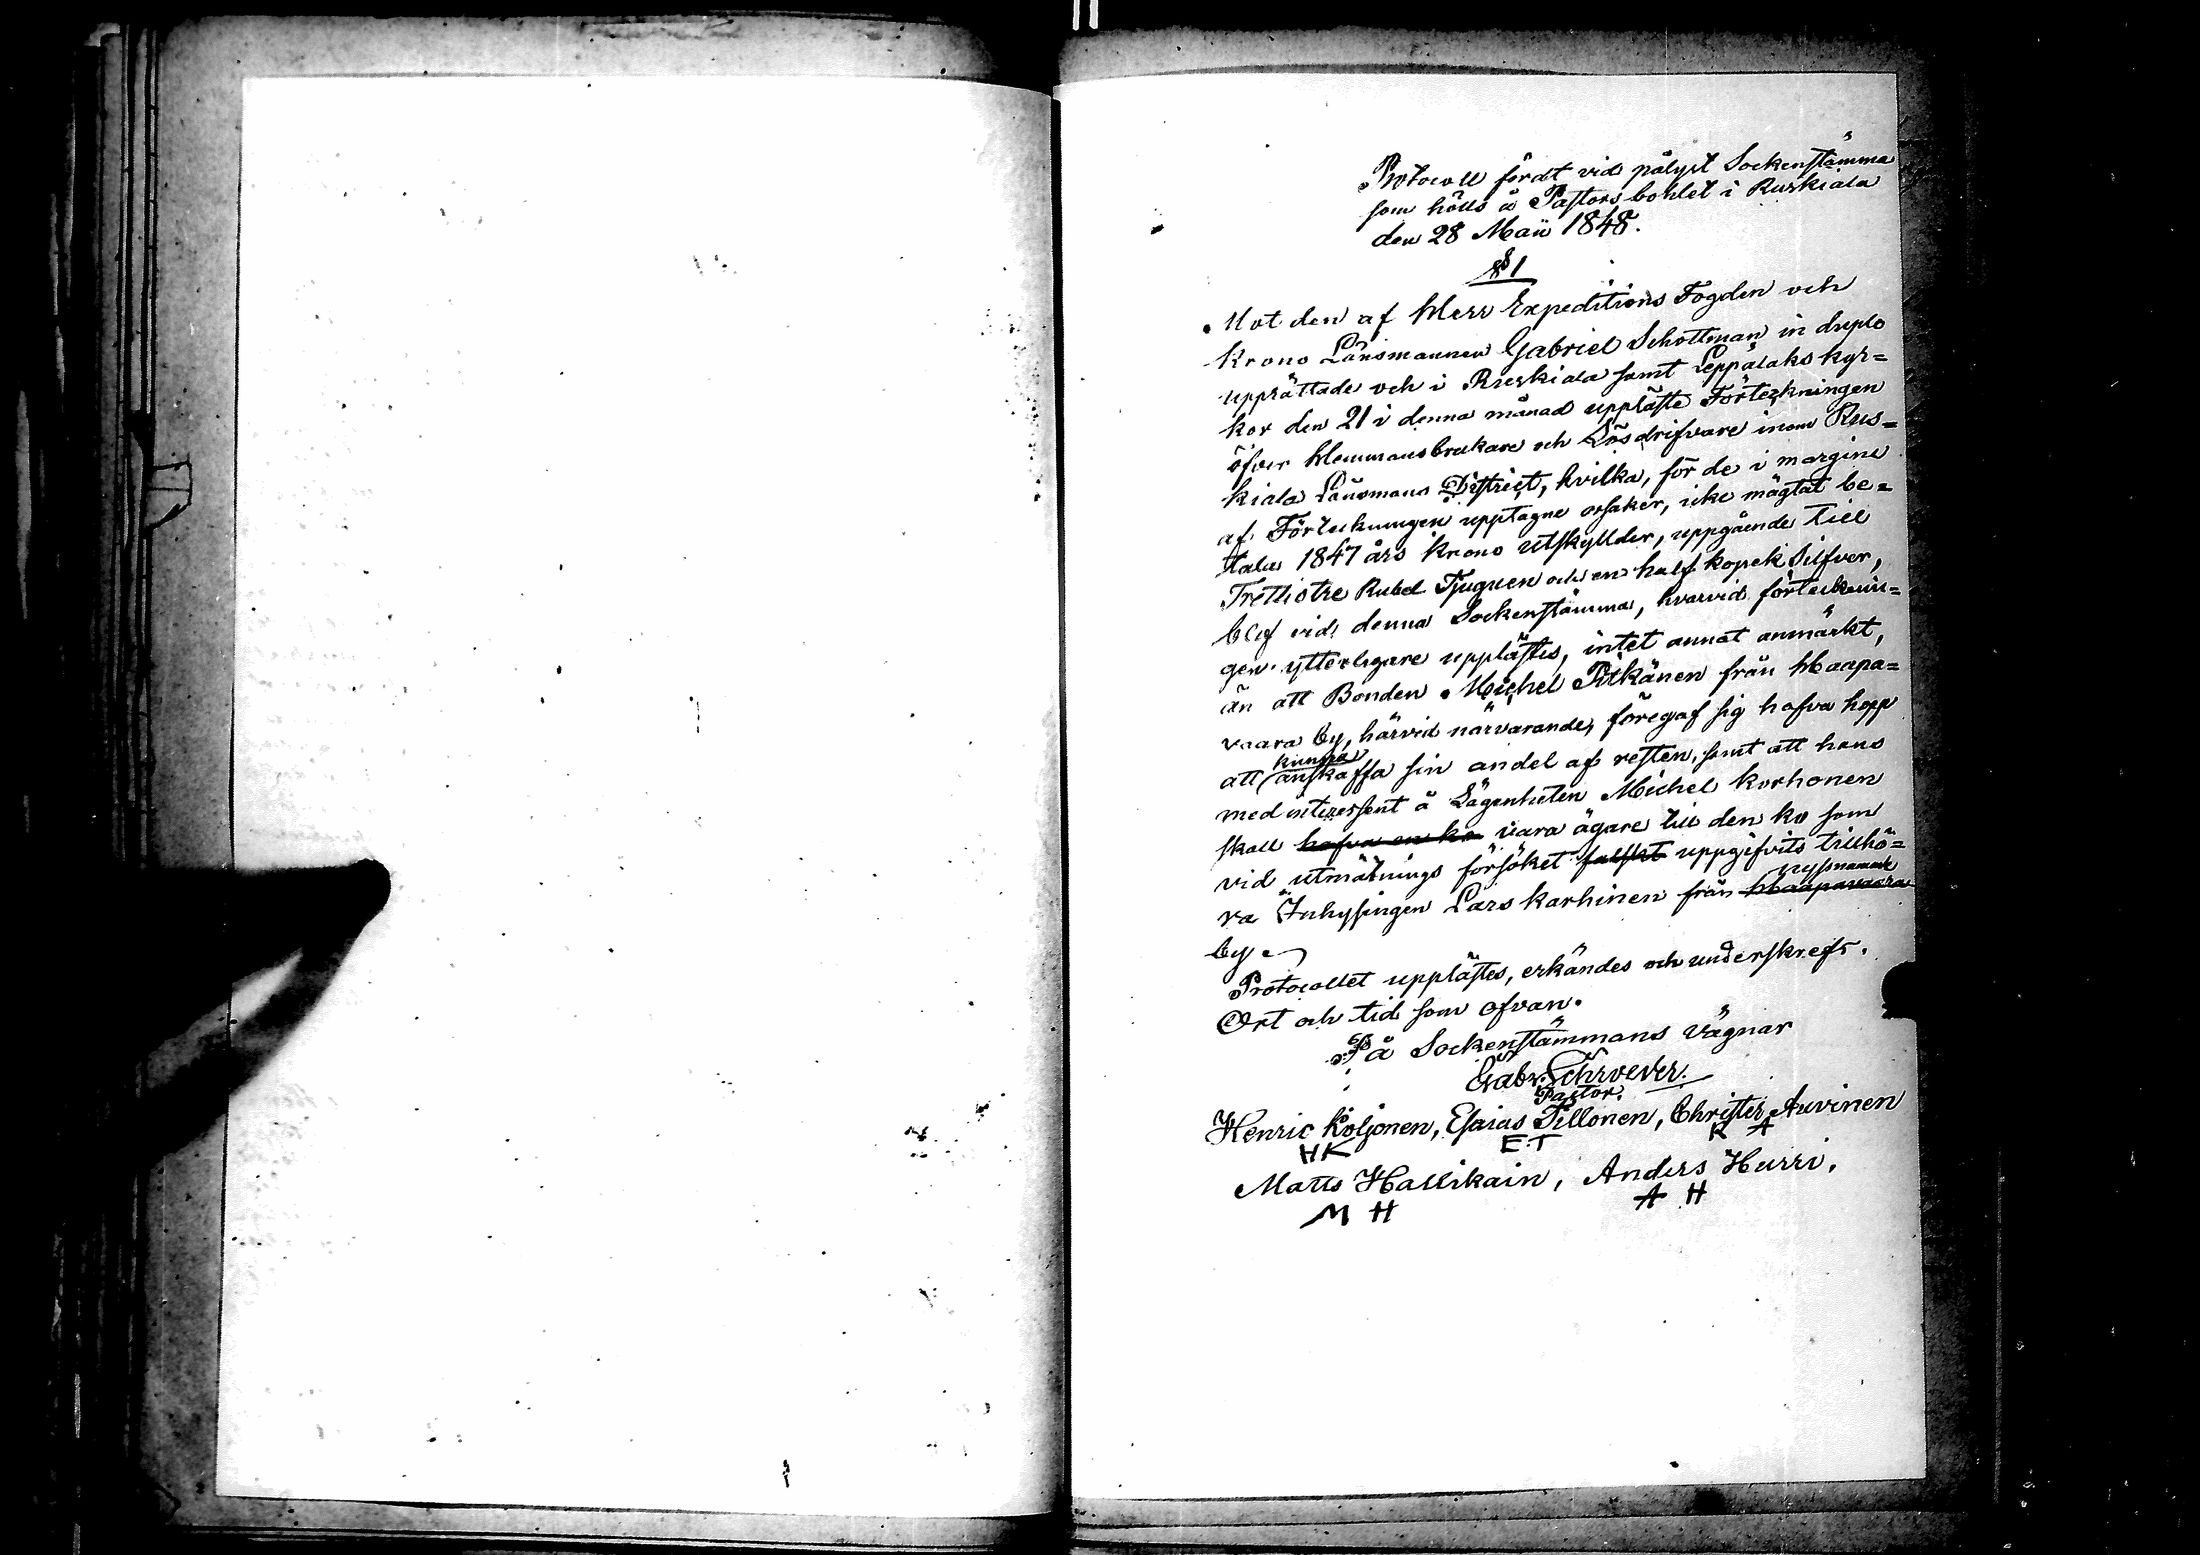 Protocoll fördt vid pålyst Sockenstämma
som hölls å Pastorsbohlet i Ruskiala
den 28 Maii 1848.
§ 1
Mot den af Herr Expeditions Fogden och
Krono Länsmannen Gabriel Schottman in duplo
upprättade och i Ruskiala samt Leppälaks kyr=
kor den 21 i denna månad uppläste Förteckningen
öfver Hemmansbrukare och Lösdrifvare inom Rus=
kiala Länsmans District, hvilka, för de i margine
af Förteckningen upptagne orsaker, icke mägtat be=
tala 1847 års Krono Utskyllder, uppgående till
Trettiotre Rubel Tjuguen och en half kopek Silfver,
blef vid denna Sockenstämma, hvarvid förtecknin=
gen ytterligare upplästes, intet annat anmärkt,
än att Bonden Michel Pitkänen från Haapa=
vaara by, härvid närvarande, föregaf sig hafva hopp
att kunna anskaffa sin andel af resten, samt att hans
med interessent å Lägenheten Michel Korhonen
skall hafva en ko vara ägare till den ko som
vid utmätnings försöket falskt uppgifvits tillhö=
ra Inhysingen Lars Karhinen från Haapavaara nyssnamnde
by.
Protocollet upplästes, erkändes och underskrefs.
Ort och tid som ofvan.
På Sockenstämmans Vägnar
Gabr. Schroever.
Pastor.
Henric Koljonen, Esaias Tillonen, Christer Auvinen
HK E.T K A
Matts Hallikain, Anders Hurri.
M H A H